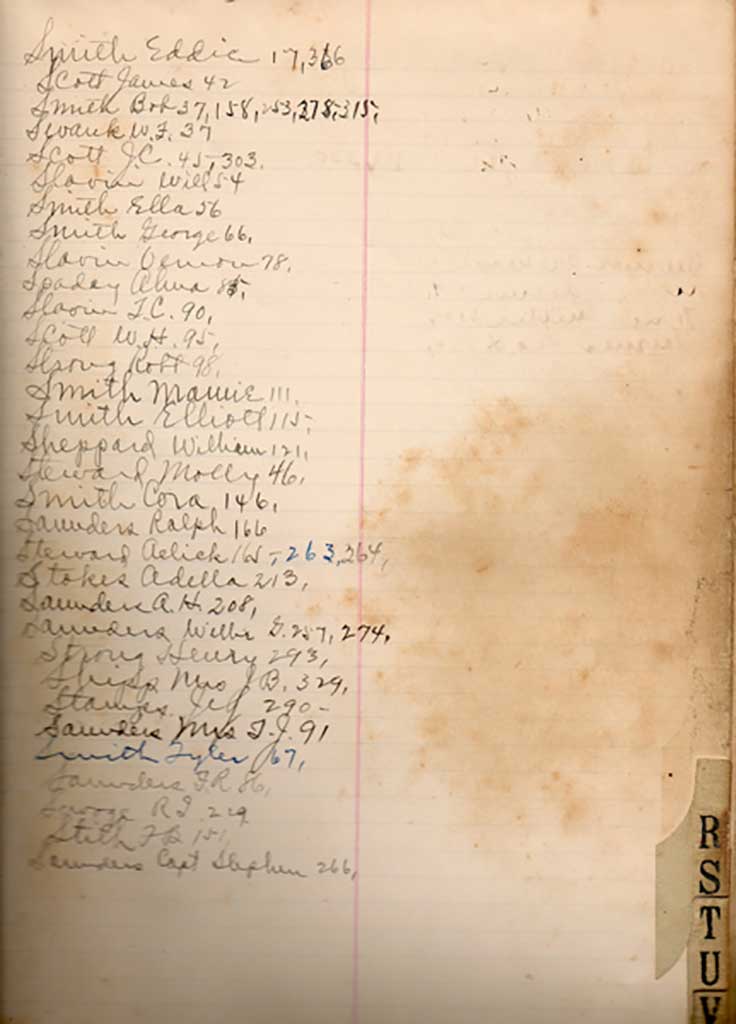 Smith Eddie 17, 366
Scott James 42
Smith Bob 37, 158, 253, 278, 315,
Swank W.F. 37
Scott J.C. 45, 303.
Slavin Will 54
Smith Ella 56
Smith George 66,
Slavin Vernon 78,
Spaday Alma
Slavin T.C. 90,
Scott W.H. 95,
Strong Robt 98,
Smith Mamie 111,
Smith Elliott 115,
Sheppard William 121,
Steward Molly 46,
Smith Cora 146,
Saunders Ralph 166
Steward Aelick 165, 263, 264,
Stokes Adella 213,
Saunders A.H. 208,
Saunders Willie G. 257, 274,
Strong Henry 293,
Shipp Mrs J.B. 329,
Stamps 290-
Saunders Mrs T.J. 91
Smith Tyler 67,
Saunders F.R 86,
R.I. 229
Stith 151,
Saunders Capt Stephen 266,
R
S
T
U
V